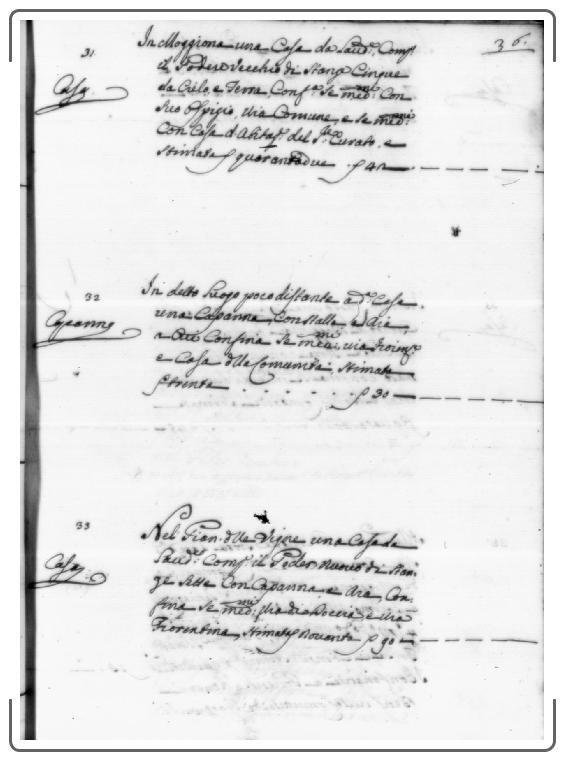 36.
31
Casa
In Moggiona una Casa da Lavo.re Comp.
il Podere Vecchio di Stanze Cinque
da Cielo, e Terra, Conf.a Se med.mi Con
Suo Ospizio, Via Comune, e Se med.mi
Con Casa d'Abitaz. del S.r Curato, e
Stimata quarantadue 42
32
Capanna
In detto Luogo poco distante a d.a Casa
una Capanna, Con Stalla, e Aia
Confina Se med.mi, via
e Casa d'lla Comunità, Stimata
trenta 30
33
Casa
Nel Pian d'lle Vigne una Casa da
Lavo.re Comp. il Poder Nuovo di Stan-
ze Sette Con Capanna e Aia, Con-
fina Se med.mi Via di e Via
Fiorentina, Stimata Novanta 90